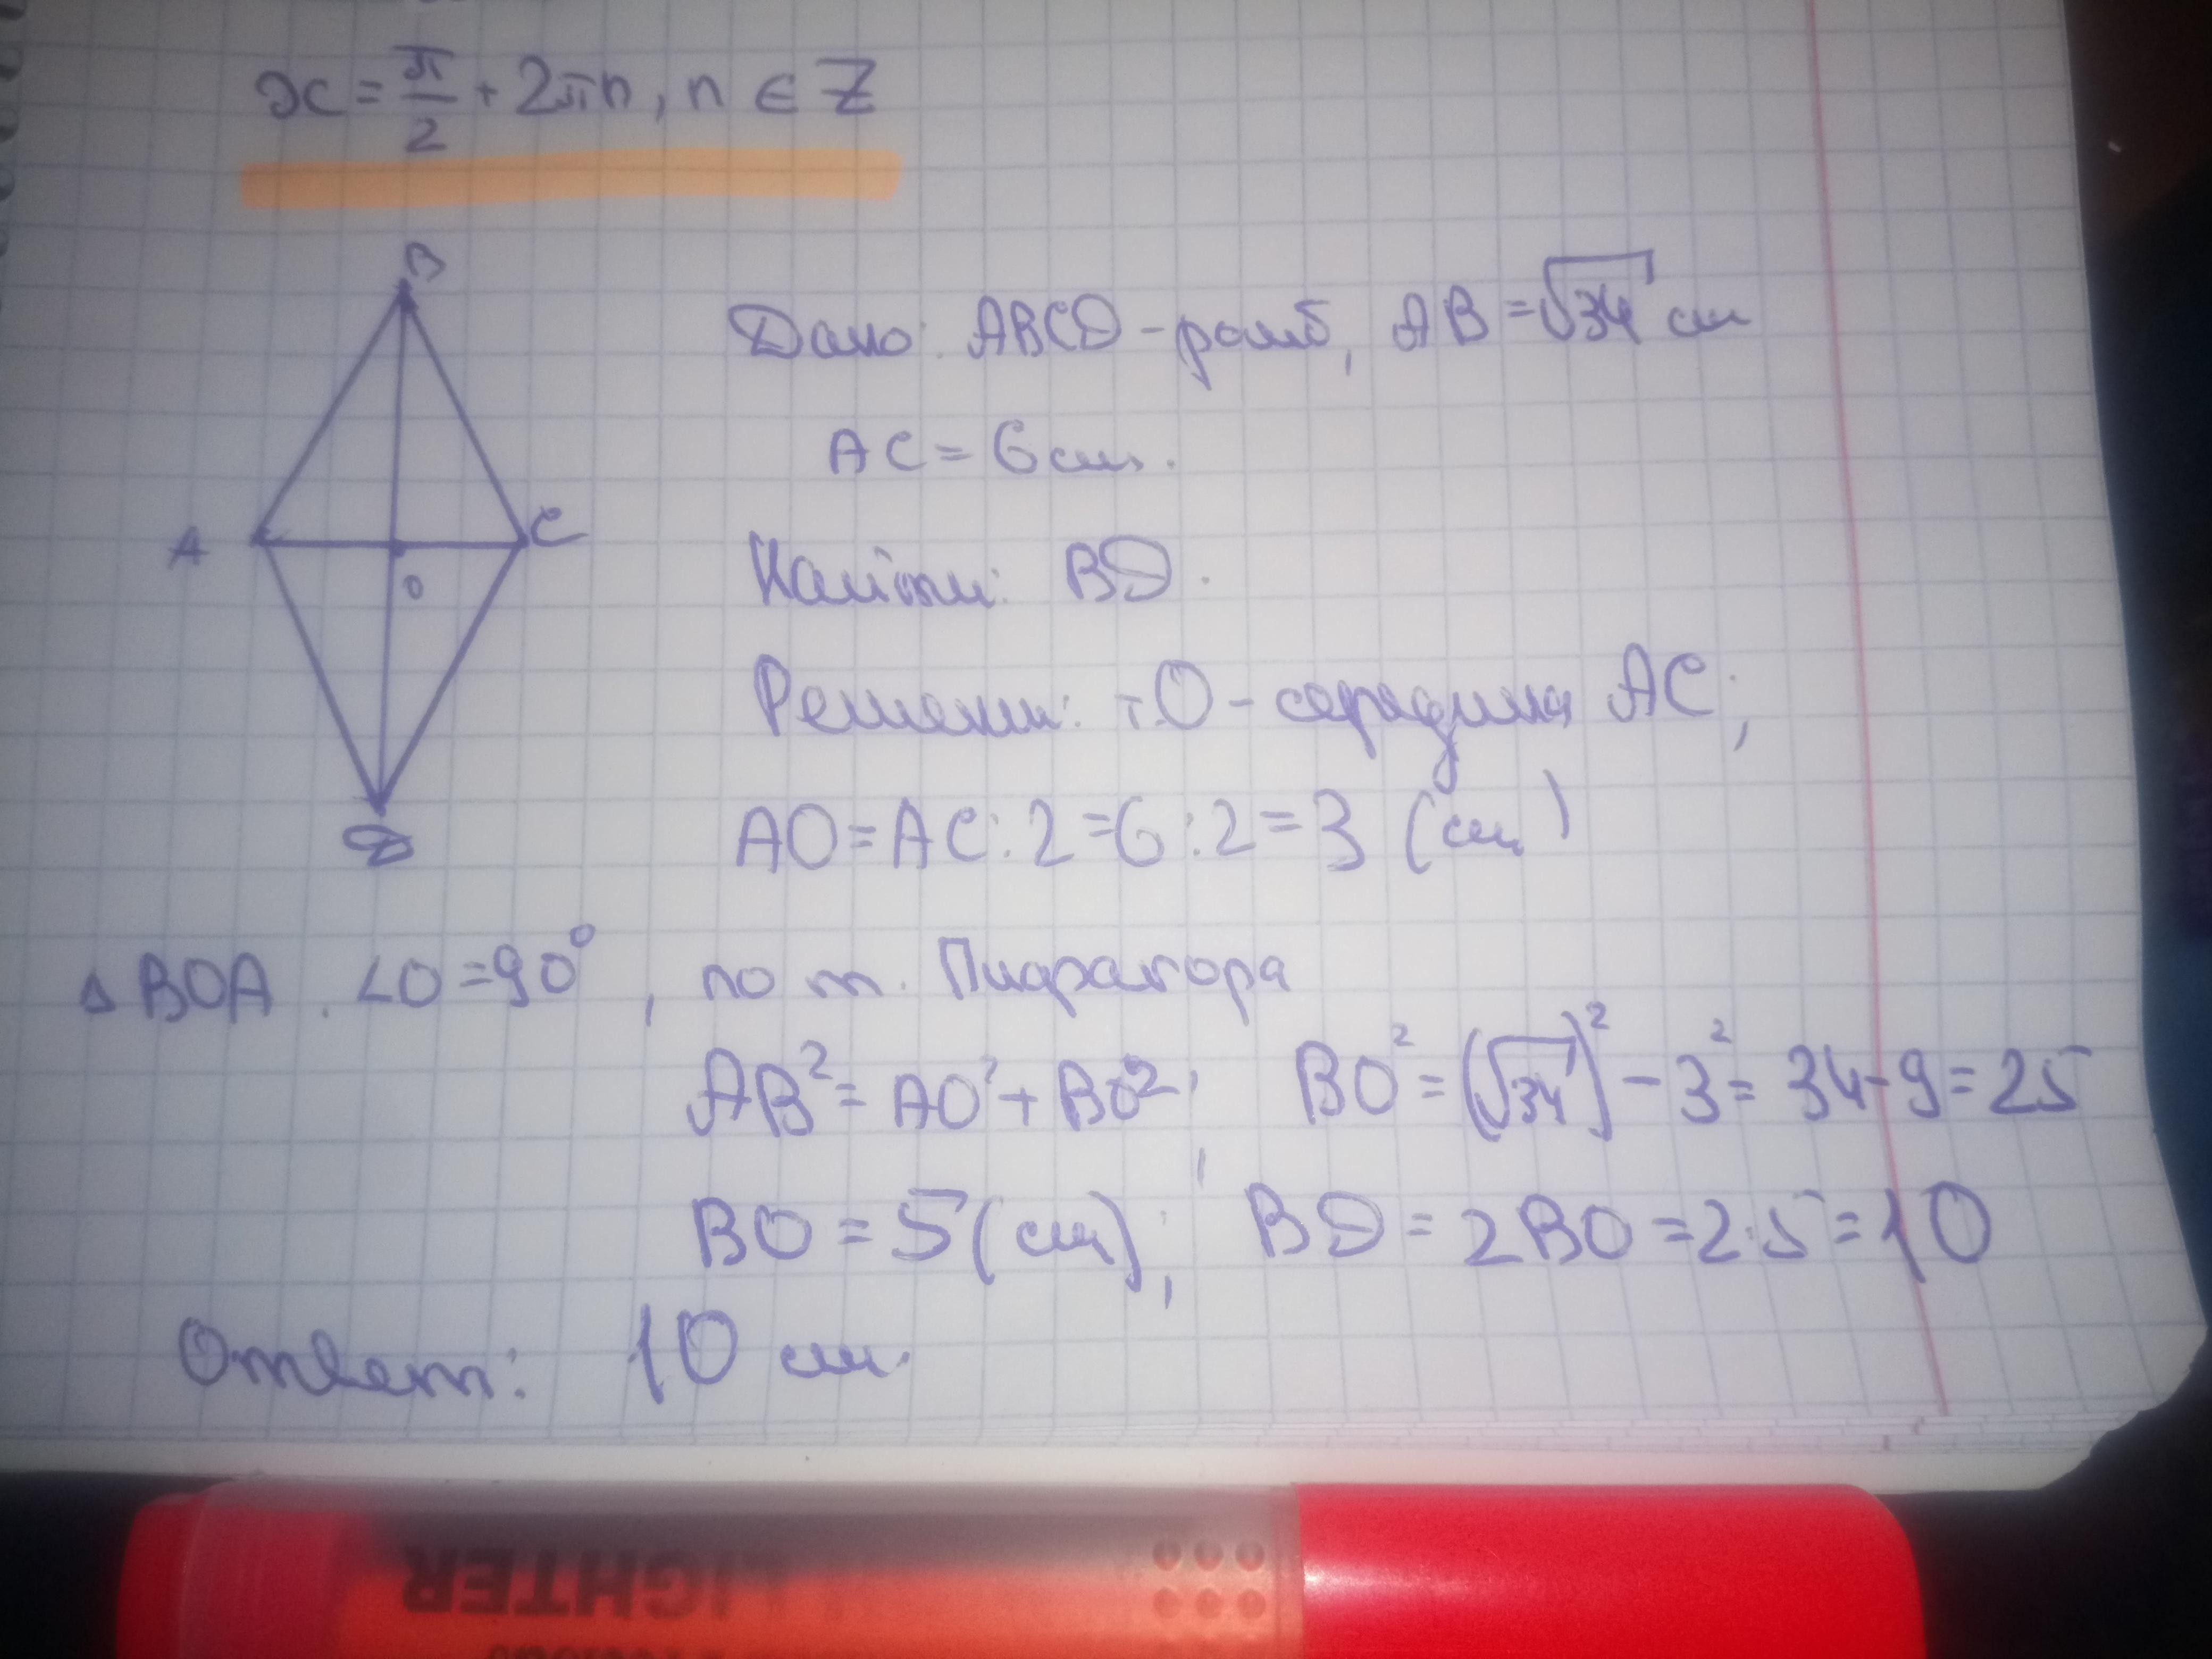 x = π/2 + 2πn, n ∈ Z
B
Дано: ABCD - ромб, AB = √34 см
AC = 6 см.
A
C
O
Найти: BD.
Решени: т.О - середина AC;
D
AO = AC : 2 = 6 : 2 = 3 (см)
△ BOA. ∠O = 90°, по т. Пифагора
AB² = AO² + BO²; BO² = (√34)² - 3² = 34 - 9 = 25
BO = 5 (см); BD = 2BO = 2·5 = 10
Ответ: 10 см.
LIGHTER